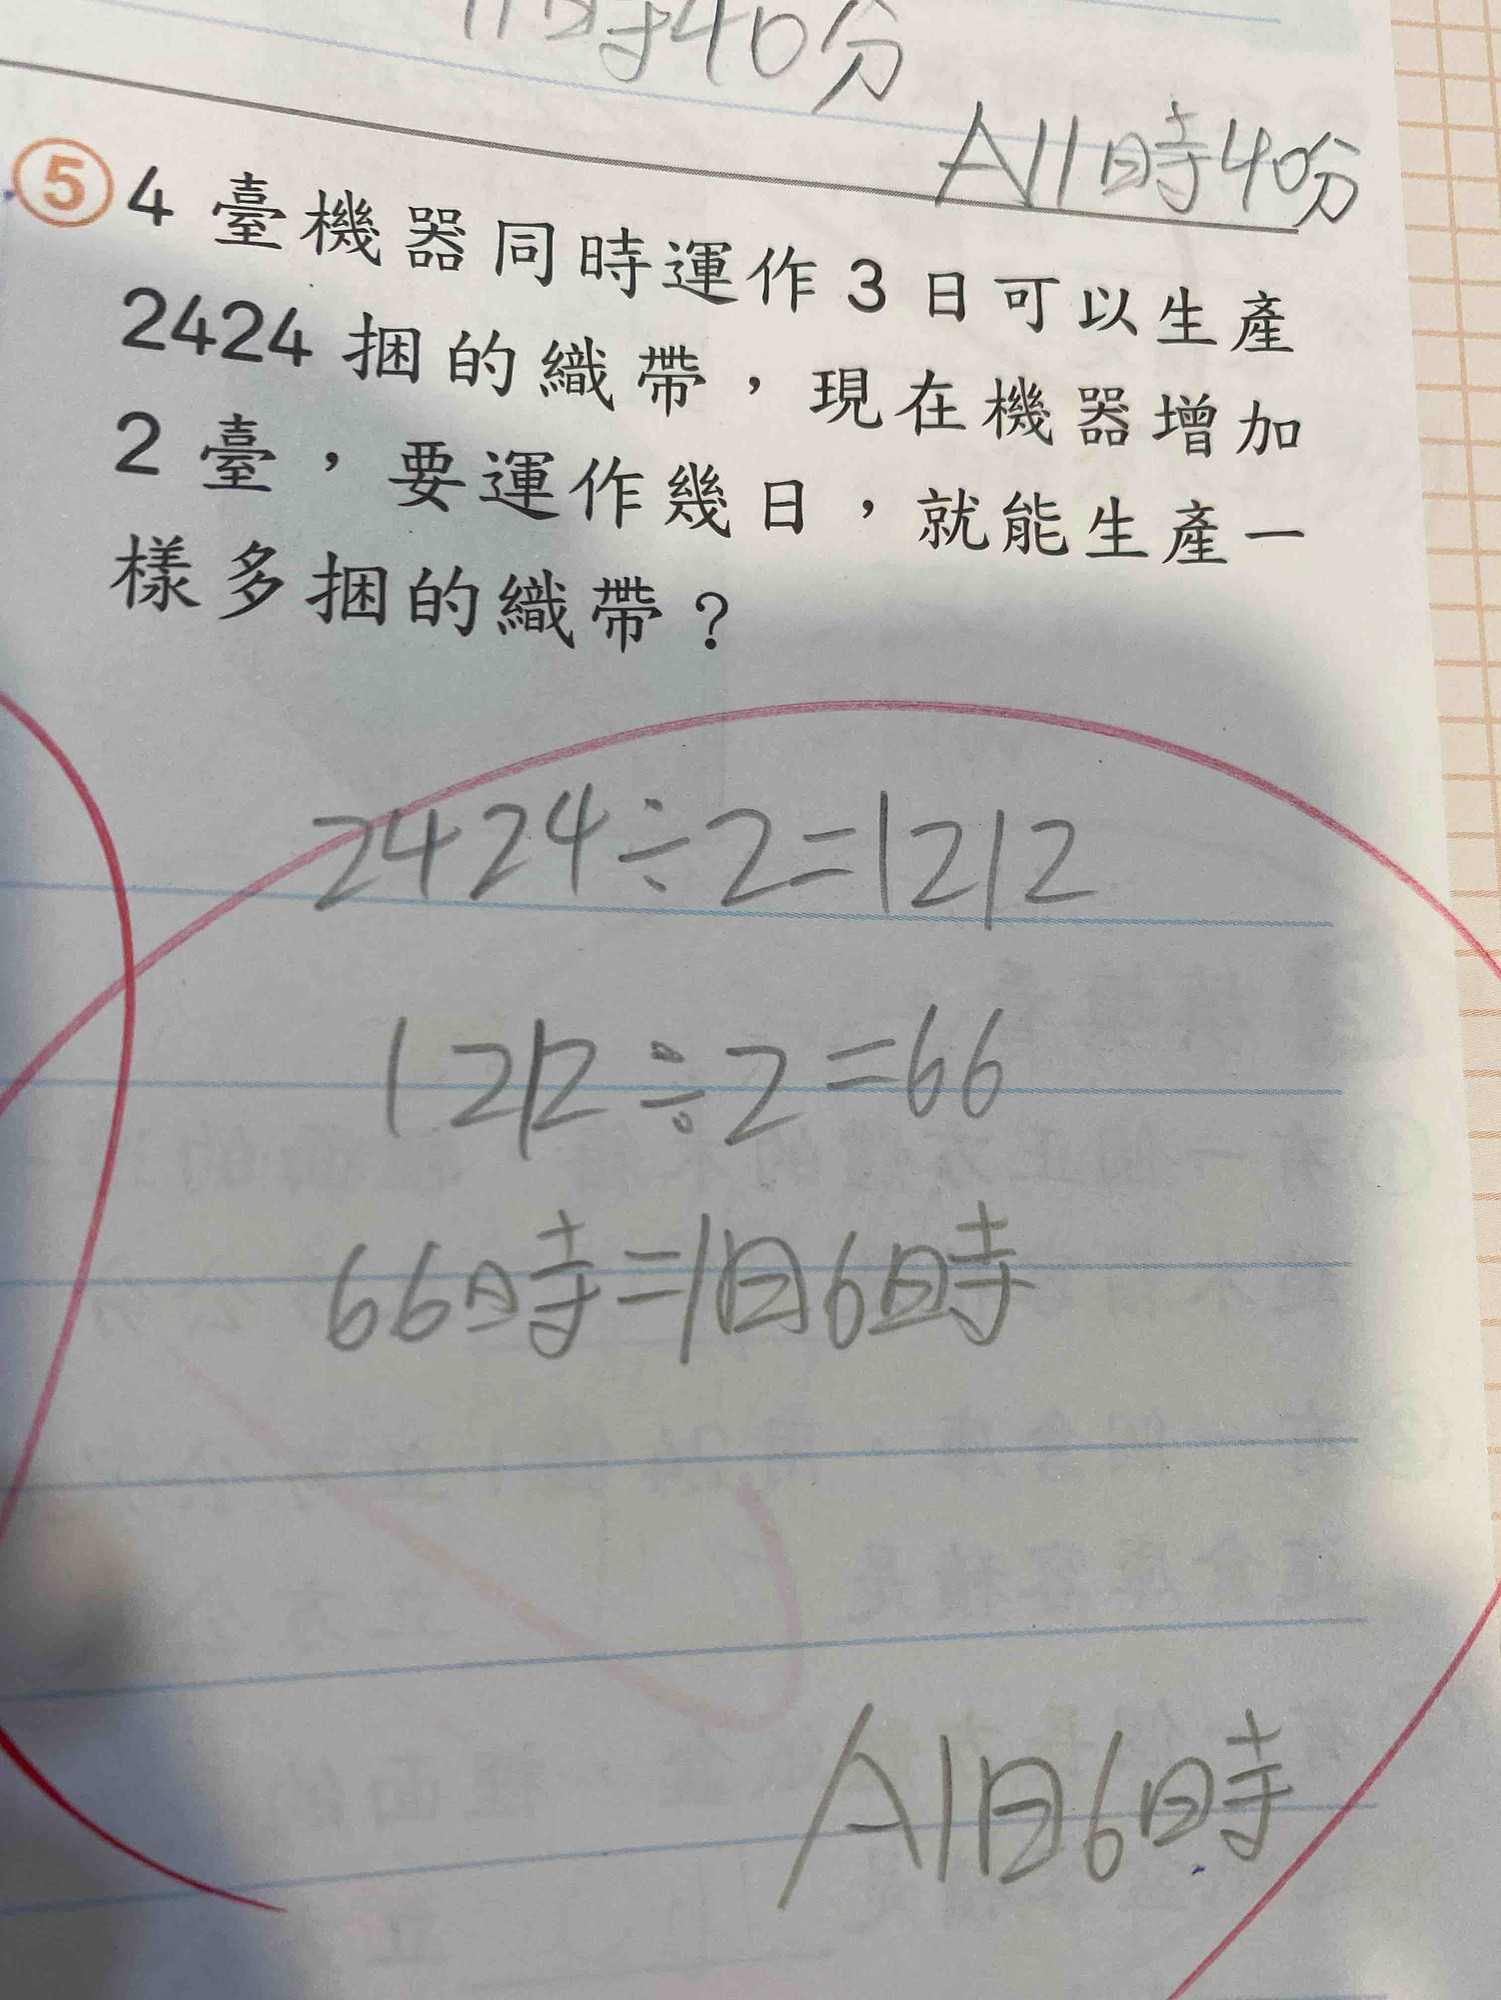 11時40分
A11時40分
⑤ 4臺機器同時運作3日可以生產
2424捆的織帶，現在機器增加
2臺，要運作幾日，就能生產一
樣多捆的織帶？
2424÷2=1212
1212÷2=66
66時=1日6時
A1日6時